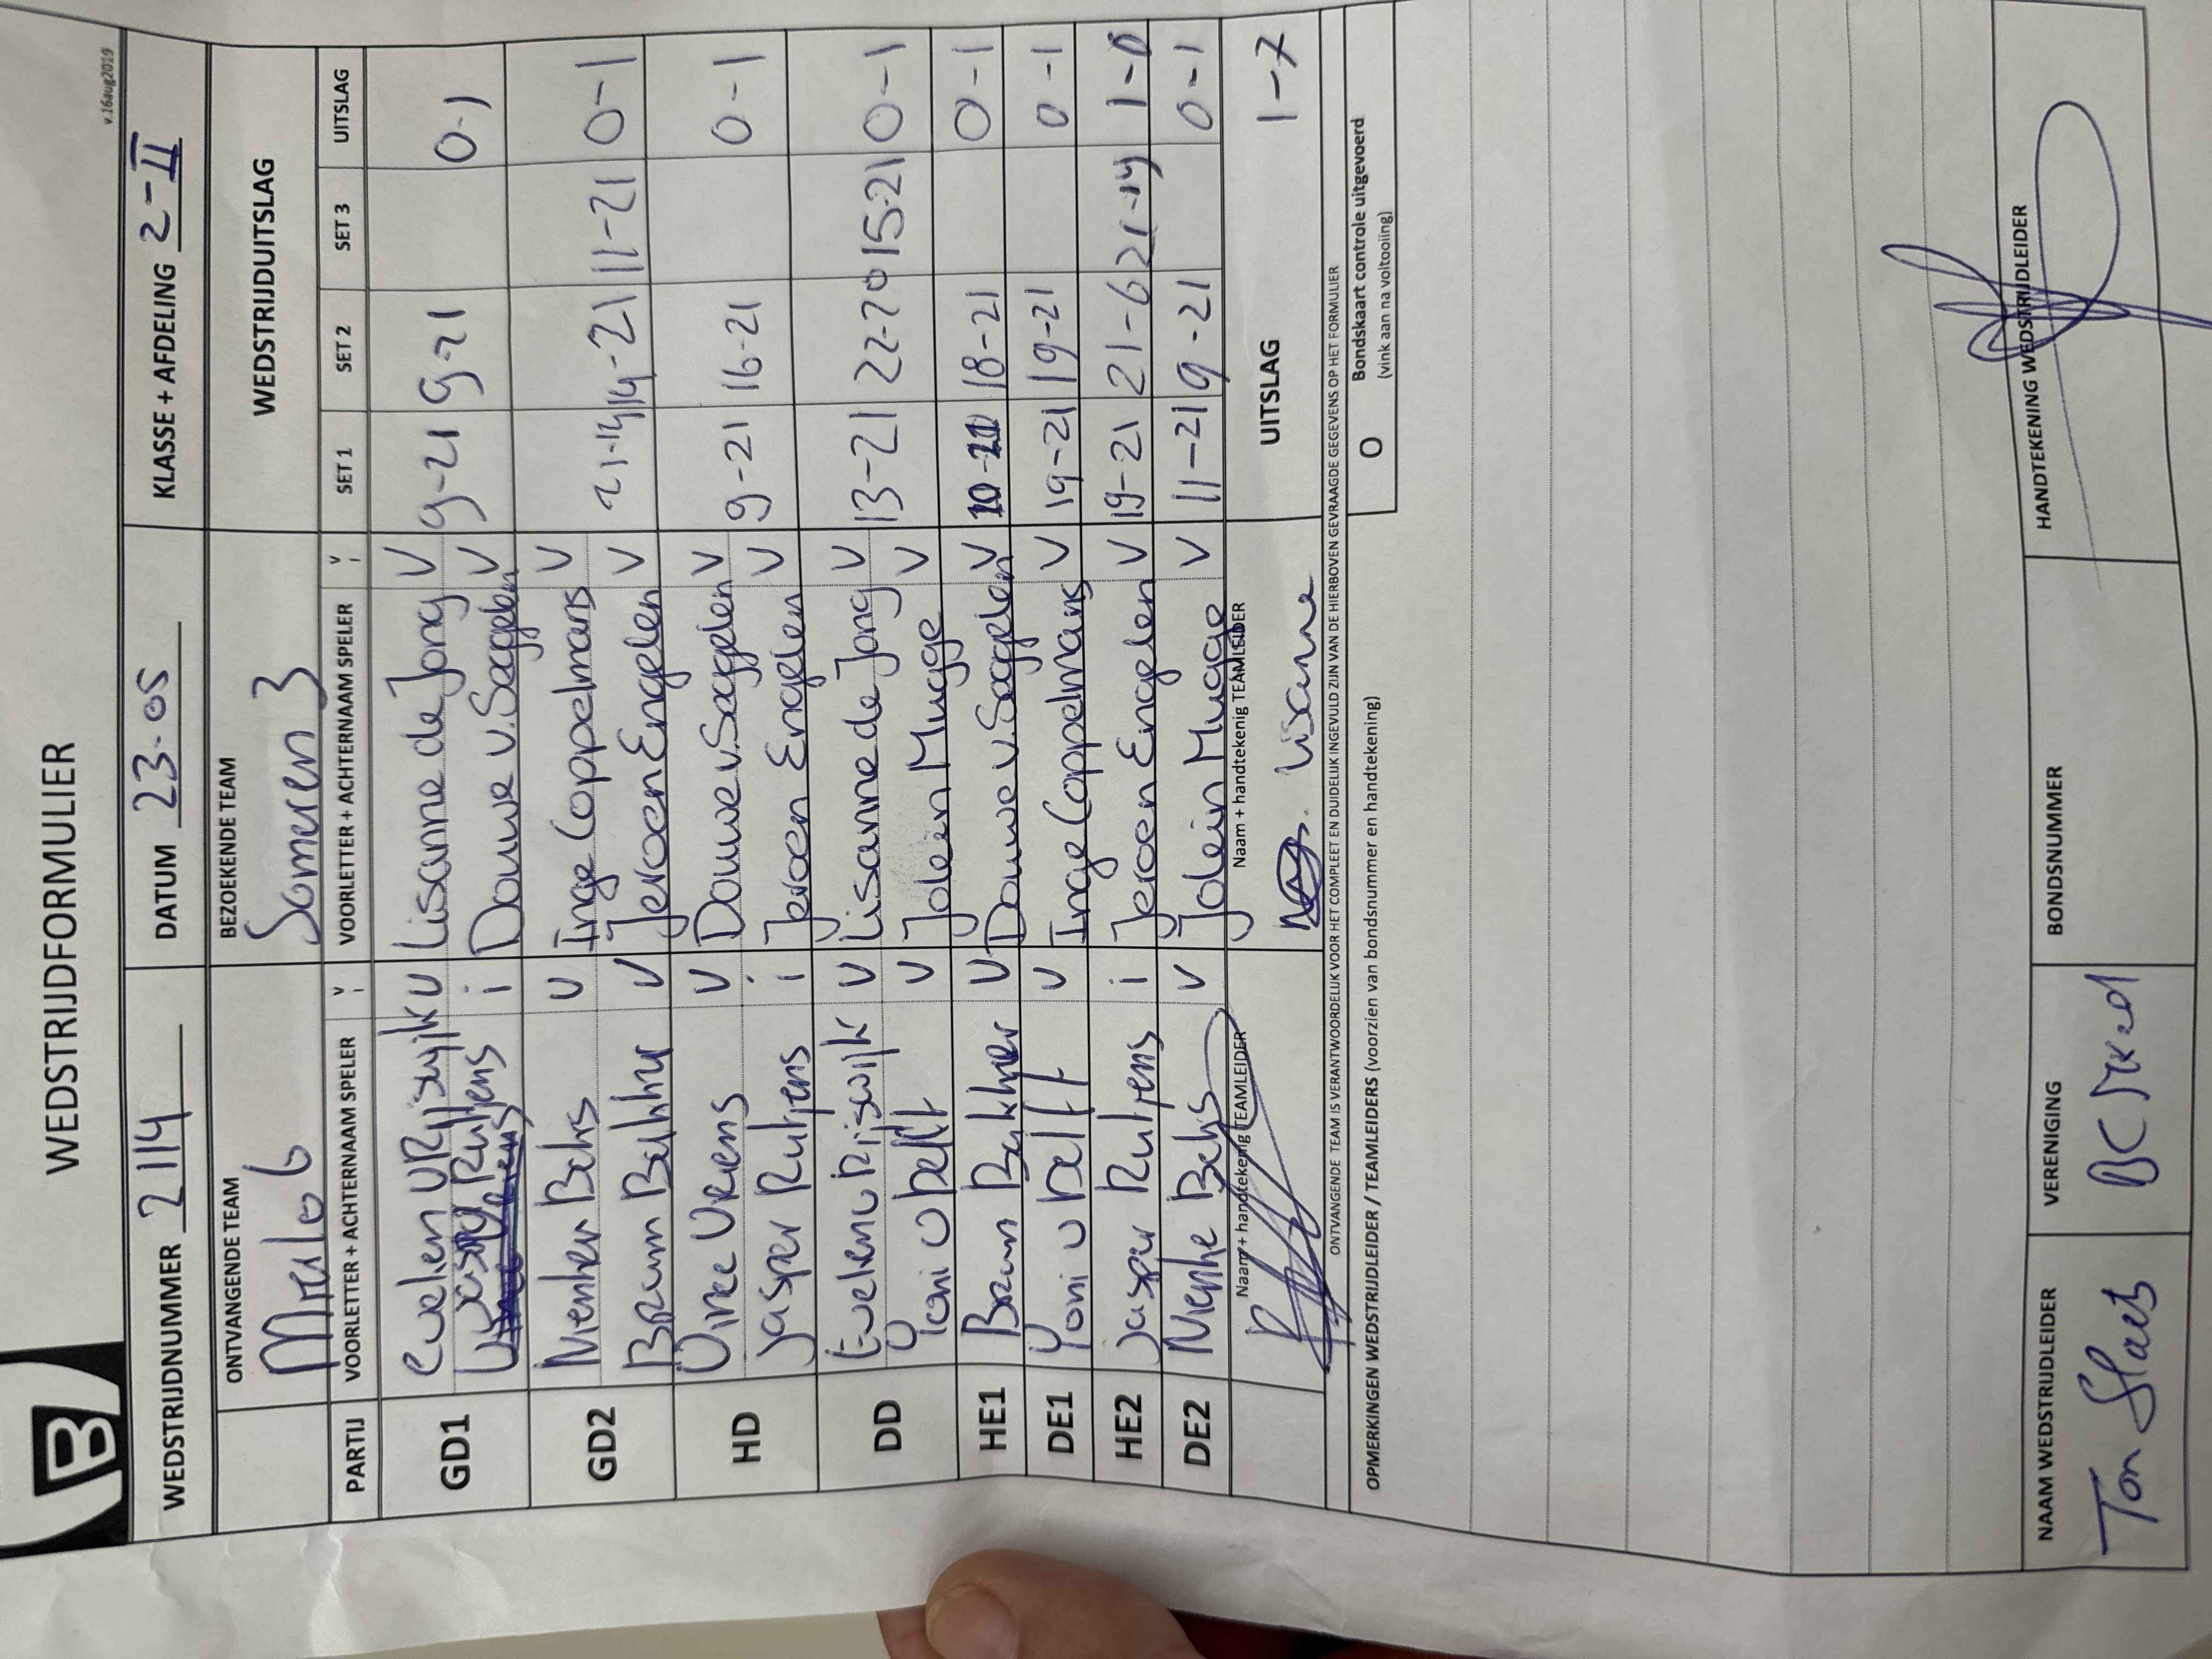 B
WEDSTRIJDFORMULIER
v.16aug2019
WEDSTRIJDNUMMER 2114 DATUM 23-05 KLASSE + AFDELING 2-II
ONTVANGENDE TEAM BEZOEKENDE TEAM WEDSTRIJDUITSLAG
6 Someren 3
PARTIJ VOORLETTER + ACHTERNAAM SPELER V I VOORLETTER + ACHTERNAAM SPELER V I SET 1 SET 2 SET 3 UITSLAG
GD1 Evelien V Rijswijk V Lisanne de Jong V 9-21 9-21 0-1
Jasper Rutjens i Douwe v. Seggelen V
GD2 Nienke Behs V Inge Coppelmans V 21-14 14-21 11-21 0-1
Bram Bekker V Jeroen Engelen V
HD Vriens V Douwe v. Seggelen V 9-21 16-21 0-1
Jasper Rutjens i Jeroen Engelen V
DD Evelien v Rijswijk V Lisanne de Jong V 13-21 22-20 15-21 0-1
Yoni v Delft V Jolein Mugge V
HE1 Bram Bekker V Douwe v. Seggelen V 10-21 18-21 0-1
DE1 Yoni v Delft V Inge Coppelmans V 19-21 19-21 0-1
HE2 Jasper Rutjens i Jeroen Engelen V 19-21 21-6 21-14 1-0
DE2 Nienke Behs V Jolein Mugge V 11-21 9-21 0-1
Naam + handtekenig TEAMLEIDER Naam + handtekenig TEAMLEIDER UITSLAG 1-7
Lisanne
ONTVANGENDE TEAM IS VERANTWOORDELIJK VOOR HET COMPLEET EN DUIDELIJK INGEVULD ZIJN VAN DE HIERBOVEN GEVRAAGDE GEGEVENS OP HET FORMULIER
OPMERKINGEN WEDSTRIJDLEIDER / TEAMLEIDERS (voorzien van bondsnummer en handtekening)
O Bondskaart controle uitgevoerd
(vink aan na voltooiing)
NAAM WEDSTRIJDLEIDER VERENIGING BONDSNUMMER HANDTEKENING WEDSTRIJDLEIDER
Ton Slaets BC